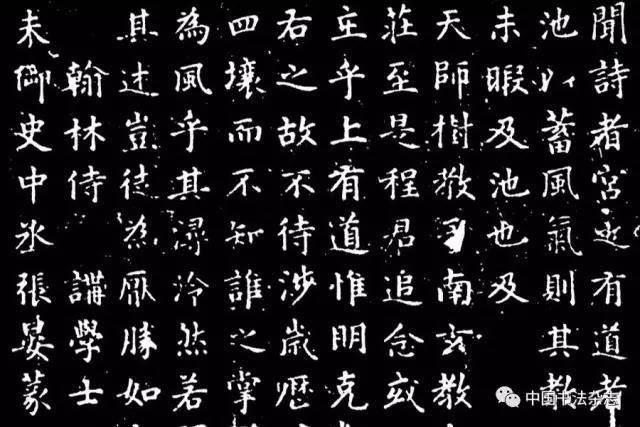 聞詩者宮近有道者
池以蓄風氣則其教
未暇及池也及
天師樹教南玄教
莊至是程君追念或
主乎上有道惟明克
右之故不待涉歲歷
四壤而不知誰之掌
為風乎其泠然若
其述豈徒為厥勝如
翰林侍 講學士
未御史中丞張晏篆
中国书法杂志